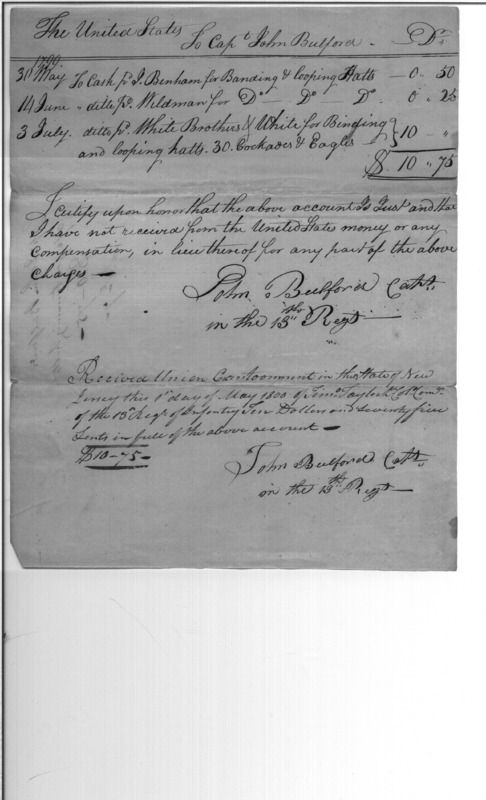 The United States
To Capt John Bulford - Dr.
1799
31 May To Cash pd J. Benham for Banding & looping Hatts - 0 " 50
14 June " ditto pd. Wildman for Do - Do - Do 0 " 25
3 July. ditto pd. White Brothers & White for Binding
and looping hatts. 30. Cockades & Eagles } 10 - "
$ 10 " 75
I certify upon honor that the above account Is Just and that
I have not received from the United States money or any
Compensation, in lieu thereof for any part of the above
charges —
John Bulford Capt.
in the 13th Regt —
Received Union Cantonment in the State of New
Jersey this 1st day of May 1800 of Timo. Taylor Lt Col. Comdt.
of the 13th Regt. of Infantry Ten Dollars and Seventy five
Cents in full of the above account —
$10-75-
John Bulford Capt.
in the 13th Regt —